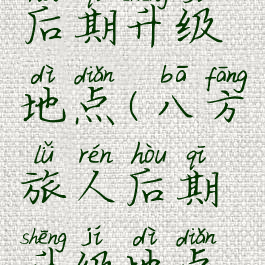 后期升级
dì diǎn bā fāng
地点(八方
lǚ rén hòu qī
旅人后期
shēng jí dì diǎn